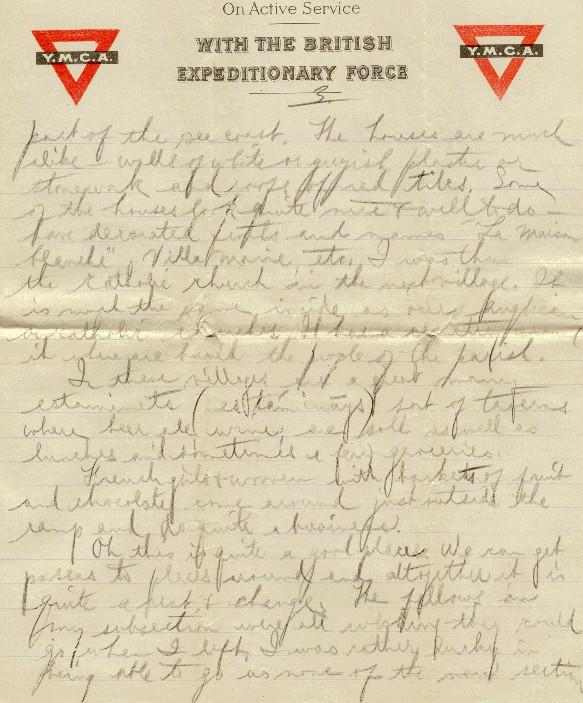 On Active Service
WITH THE BRITISH
EXPEDITIONARY FORCE
Y.M.C.A.
Y.M.C.A.
3.
part of the sea coast. The houses are much
alike - walls of white or greyish plaster or
stonework and roofs of red tiles. Some
of the houses look quite nice & well to do -
have decorated fronts and names "La Maison
blanche", Villa Marie, etc. I was thru
the Catholic church in the next village. It
is much the same inside as our Anglican
or catholic churches. It has a
it where are buried the people of the parish.
In these villages are a great many
estaminets (es tam in ays) sort of taverns
where beer ale wine are sold as well as
lunches and sometimes a few groceries.
French girls & women with baskets of fruit
and chocolate come around just outside the
camp and do quite a business.
Oh this is quite a good place. We can get
passes to places around and altogether it is
quite a rest & change. The fellows in
my subsection were all wishing they could
go, when I left. I was rather lucky in
being able to go as none of the section